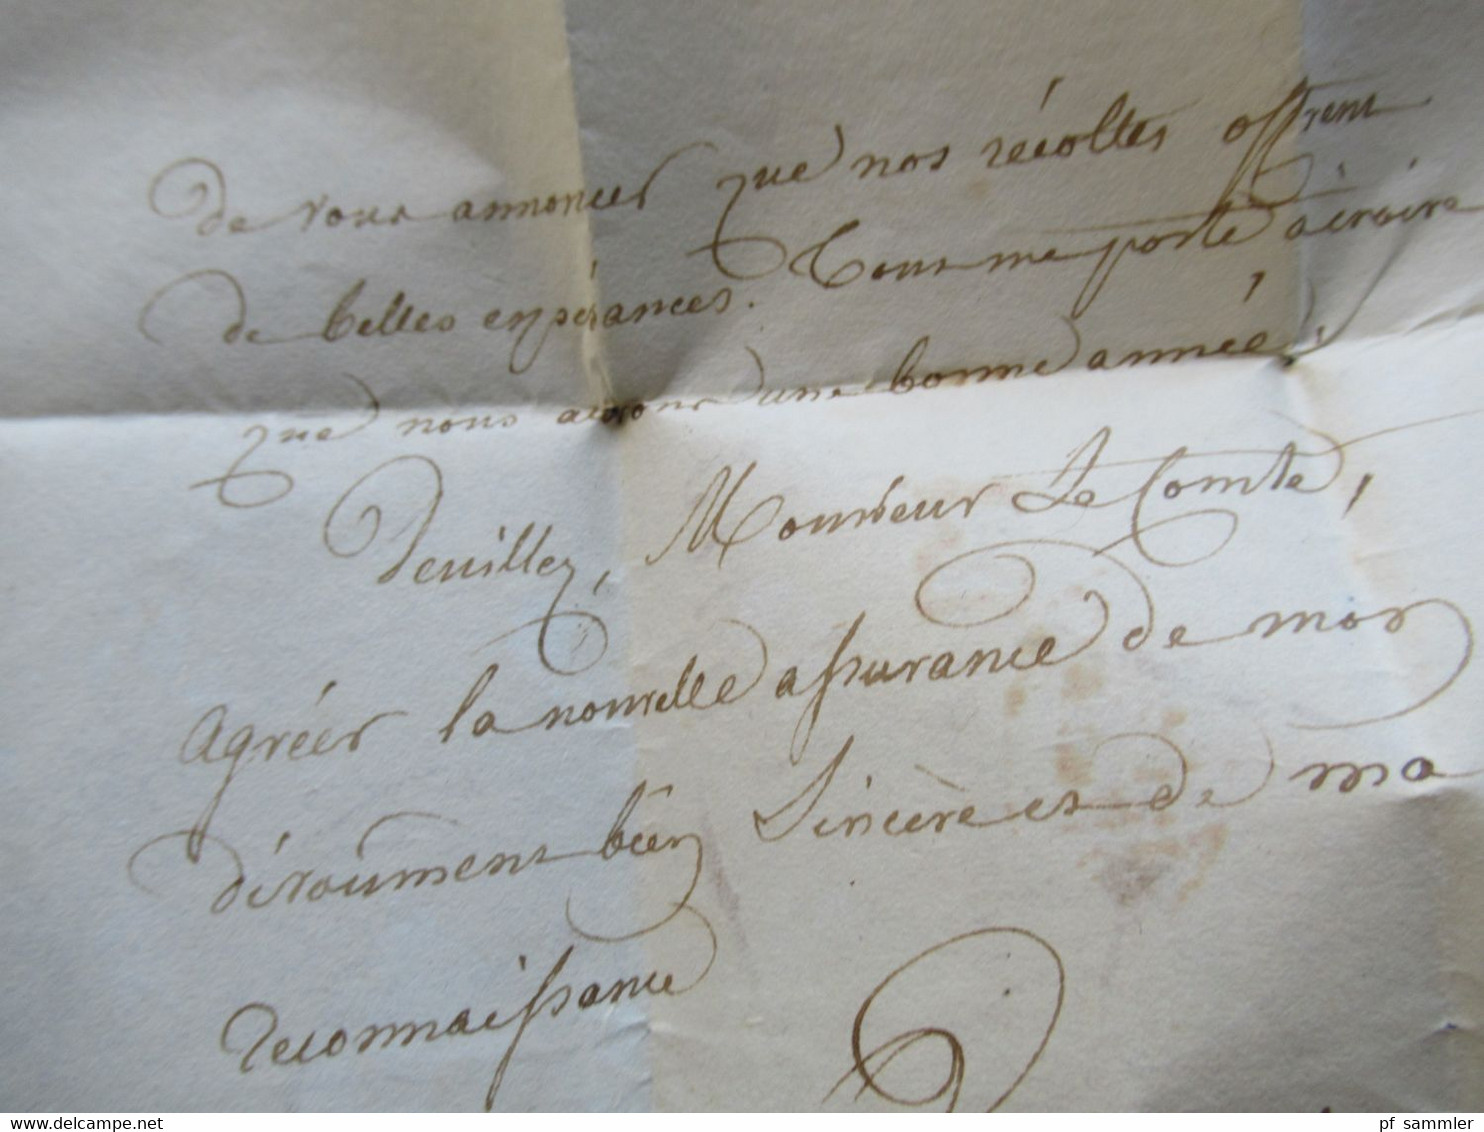 de vous annoncer que nos récoltes offrent
de belles espérances. Tout me porte à croire
que nous aurons une bonne année,
Veuillez, Monsieur Le Comte,
agréer la nouvelle assurance de mon
dévoument bien Sincère et de ma
reconnaissance
www.delcampe.net
pf_sammler